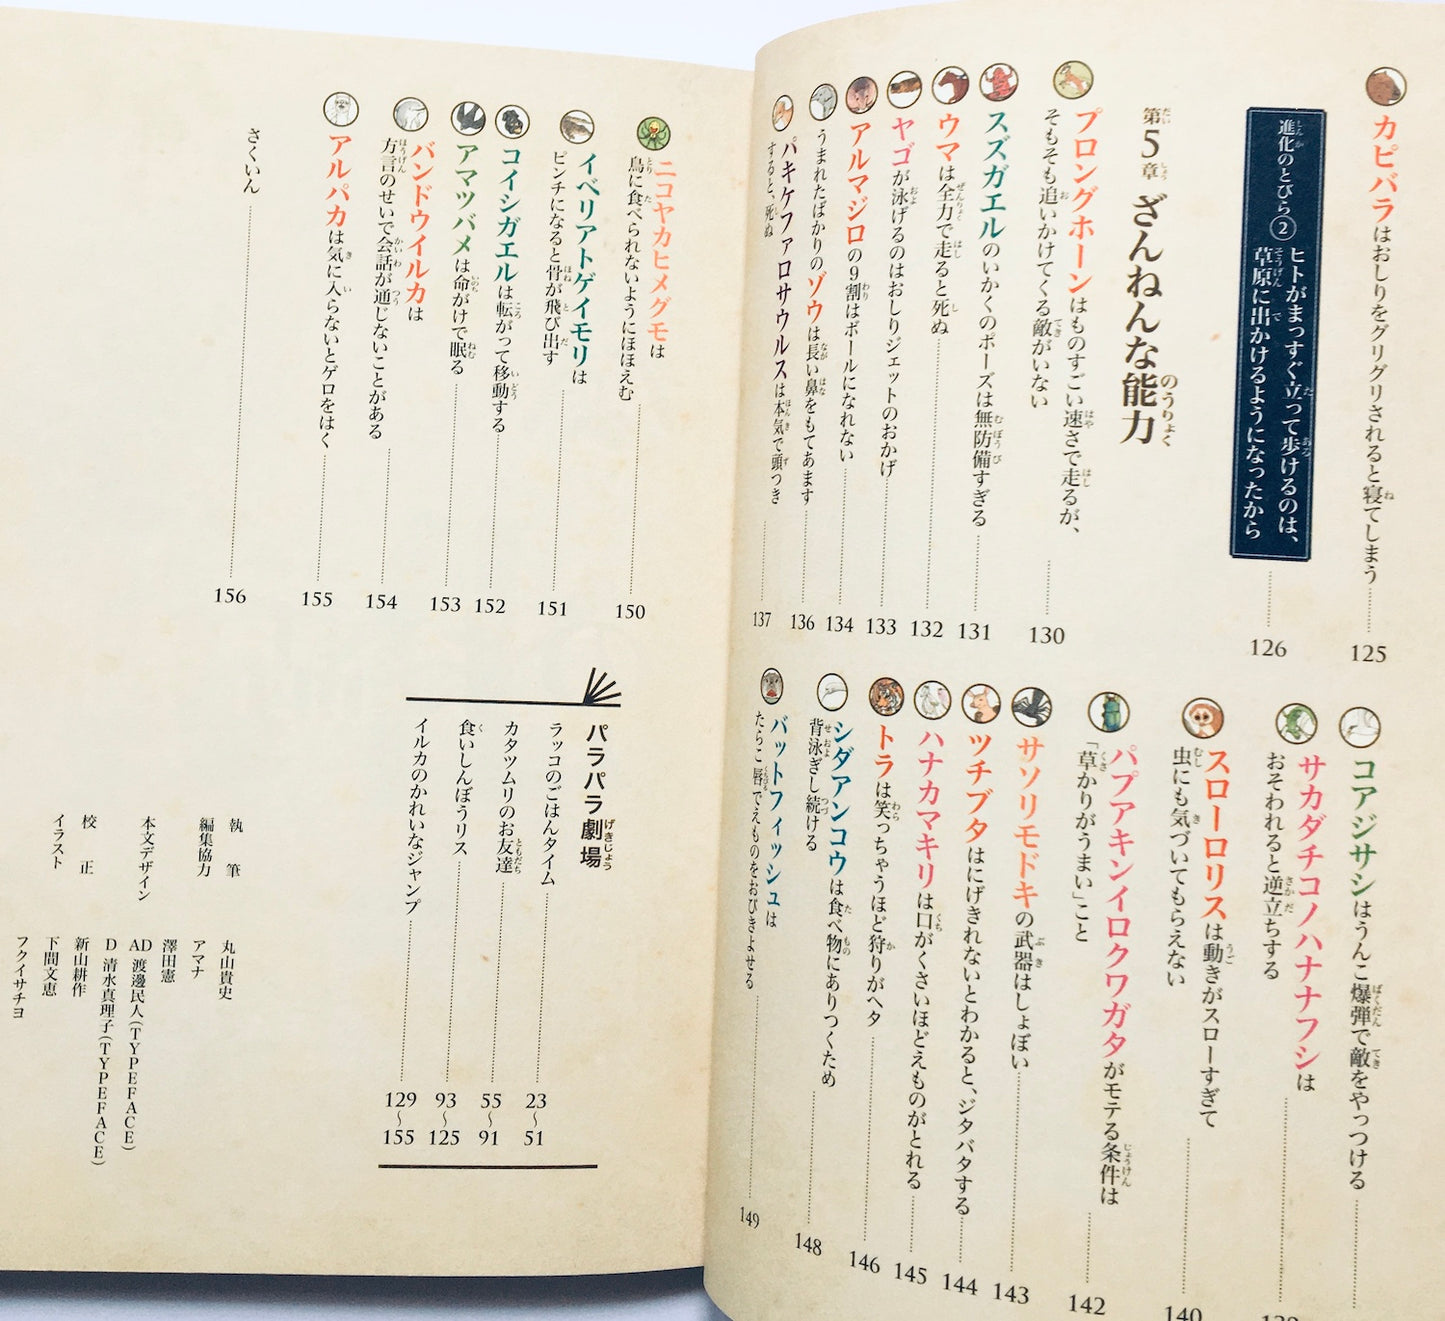 カピバラはおしりをグリグリされると寝てしまう
125
進化のとびら②
ヒトがまっすぐ立って歩けるのは、
草原に出かけるようになったから
126
第5章 ざんねんな能力
プロングホーンはものすごい速さで走るが、
そもそも追いかけてくる敵がいない
130
スズガエルのいかくのポーズは無防備すぎる
131
ウマは全力で走ると死ぬ
132
ヤゴが泳げるのはおしりジェットのおかげ
133
アルマジロの9割はボールになれない
134
うまれたばかりのゾウは長い鼻をもてあます
136
パキケファロサウルスは本気で頭つき
すると、死ぬ
137
コアジサシはうんこ爆弾で敵をやっつける
サカダチコノハナナフシは
おそわれると逆立ちする
スローロリスは動きがスローすぎて
虫にも気づいてもらえない
140
パプアキンイロクワガタがモテる条件は
「草かりがうまい」こと
142
サソリモドキの武器はしょぼい
143
ツチブタはにげきれないとわかると、ジタバタする
144
ハナカマキリは口がくさいほどえものがとれる
145
トラは笑っちゃうほど狩りがヘタ
146
シダアンコウは食べ物にありつくため
背泳ぎし続ける
148
バットフィッシュは
たらこ唇でえものをおびきよせる
149
ニコヤカヒメグモは
鳥に食べられないようにほほえむ
150
イベリアトゲイモリは
ピンチになると骨が飛び出す
151
コイシガエルは転がって移動する
152
アマツバメは命がけで眠る
153
バンドウイルカは
方言のせいで会話が通じないことがある
154
アルパカは気に入らないとゲロをはく
155
さくいん
156
パラパラ劇場
ラッコのごはんタイム
23〜51
カタツムリのお友達
55〜91
食いしんぼうリス
93〜125
イルカのかれいなジャンプ
129〜155
執筆 丸山貴史
編集協力 アマナ
澤田憲
本文デザイン AD 渡邊民人(TYPEFACE)
D 清水真理子(TYPEFACE)
校正 新山耕作
下間文恵
イラスト フクイサチヨ